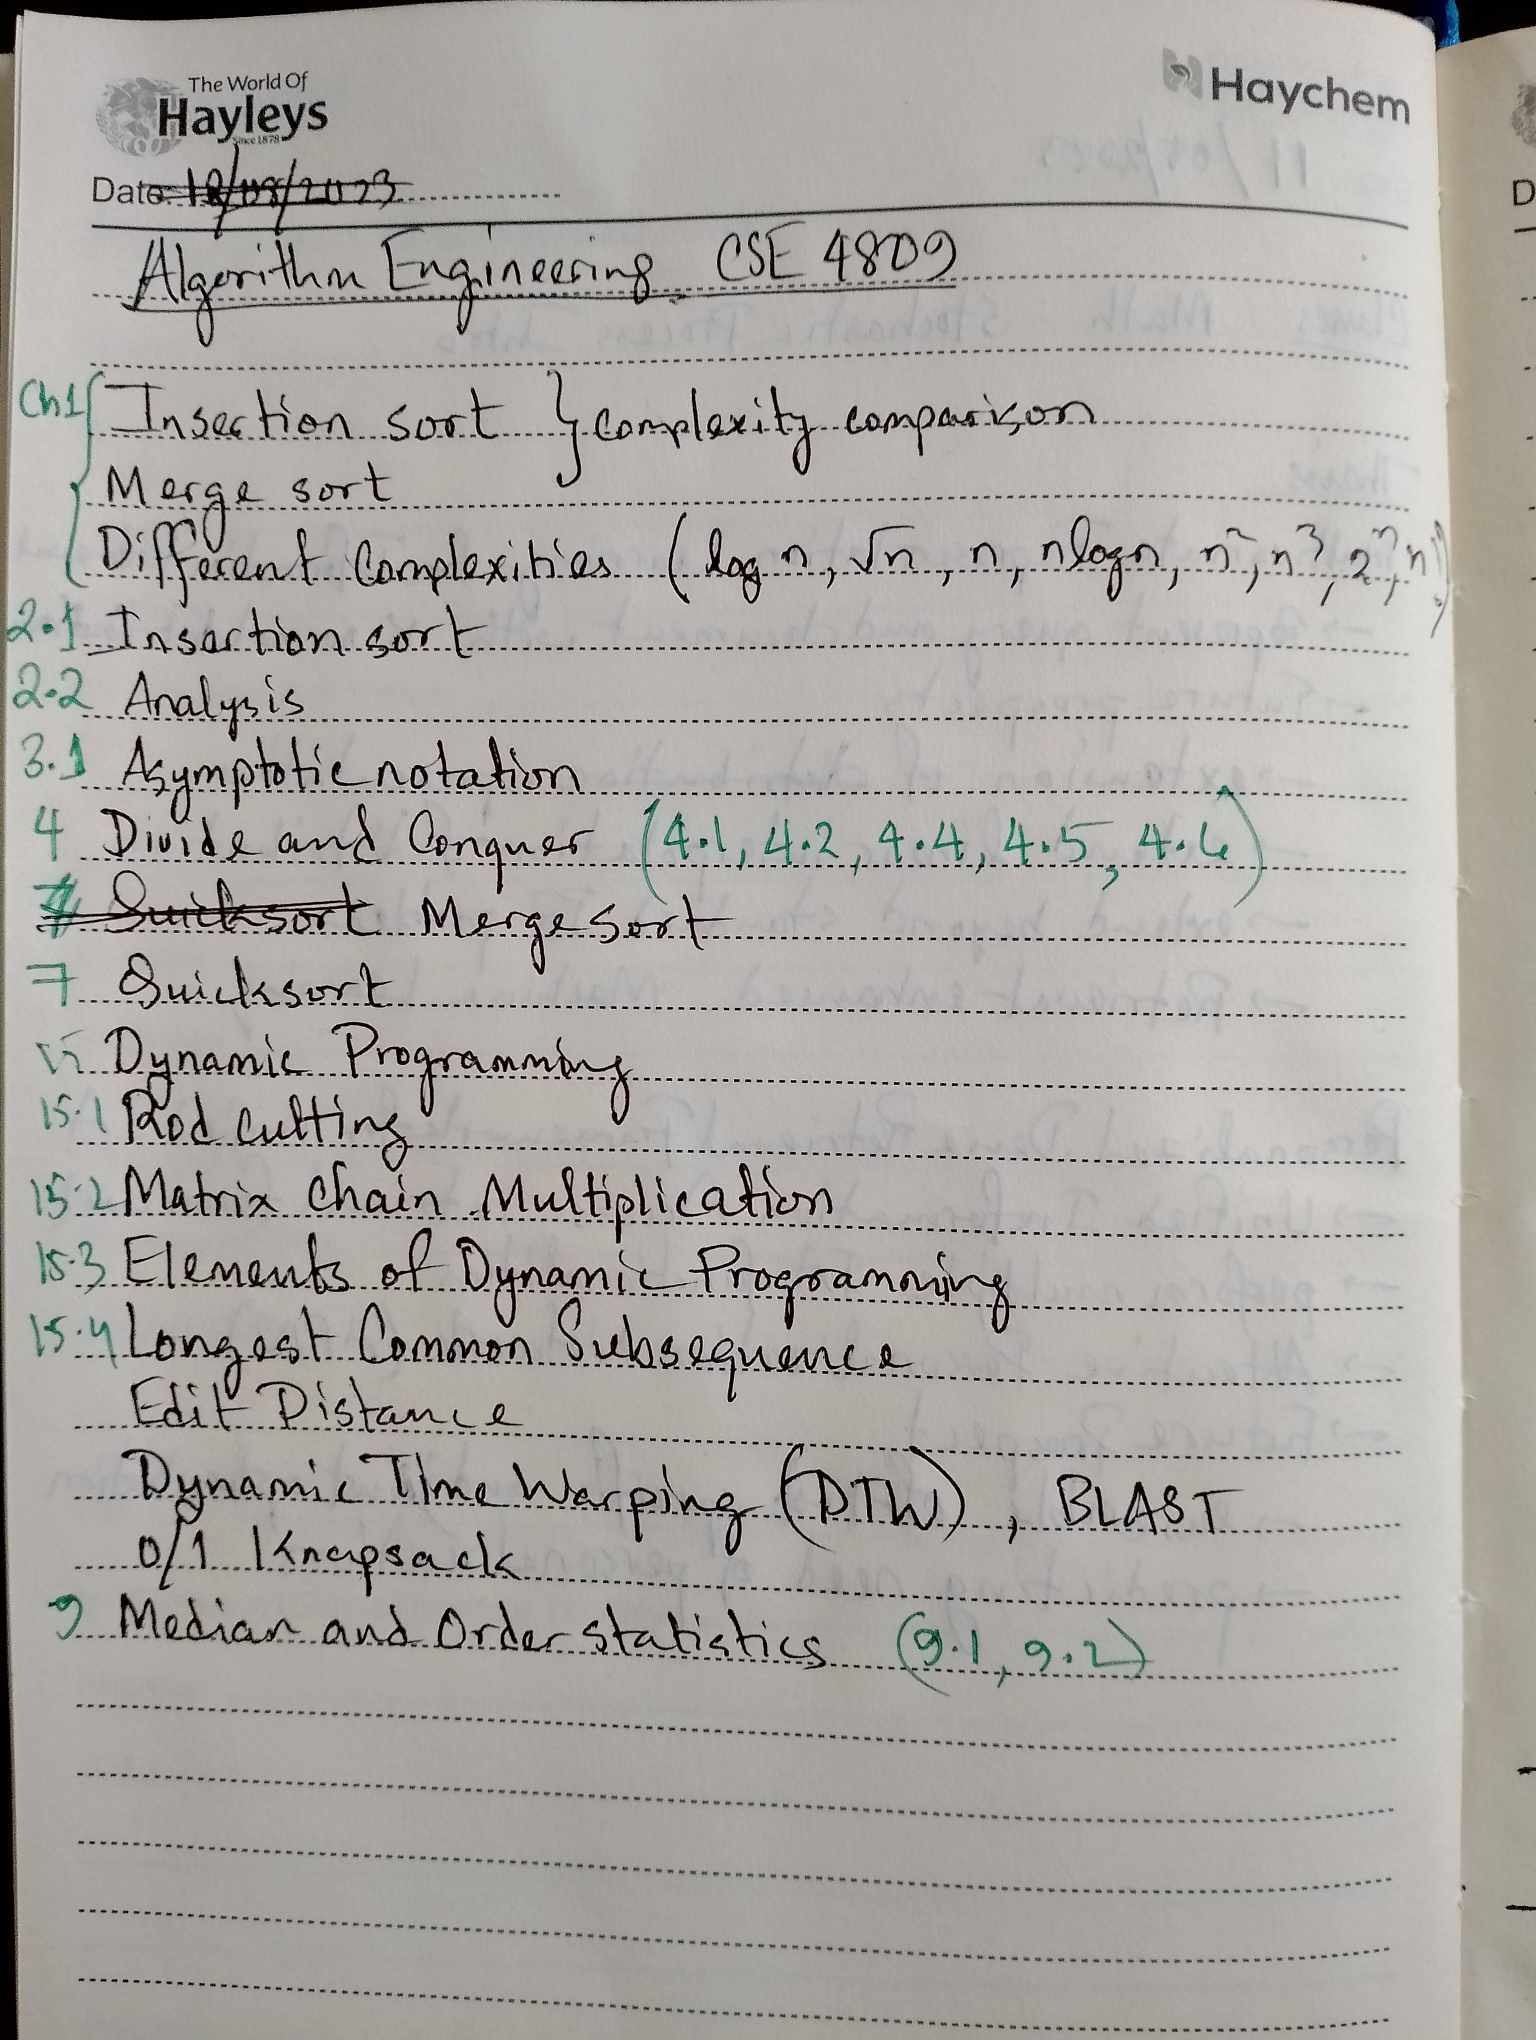 The World Of
Hayleys
Since 1878
Haychem
Date: 18/08/2023
Algorithm Engineering CSE 4809
Ch1 Insertion sort } complexity comparison
Merge sort
Different Complexities (log n, √n, n, nlogn, n², n³, 2ⁿ, n!)
2.1 Insertion sort
2.2 Analysis
3.1 Asymptotic notation
4 Divide and Conquer (4.1, 4.2, 4.4, 4.5, 4.6)
Quicksort Merge Sort
7 Quicksort
15 Dynamic Programming
15.1 Rod cutting
15.2 Matrix Chain Multiplication
15.3 Elements of Dynamic Programming
15.4 Longest Common Subsequence
Edit Distance
Dynamic Time Warping (DTW), BLAST
0/1 Knapsack
9 Median and Order statistics (9.1, 9.2)